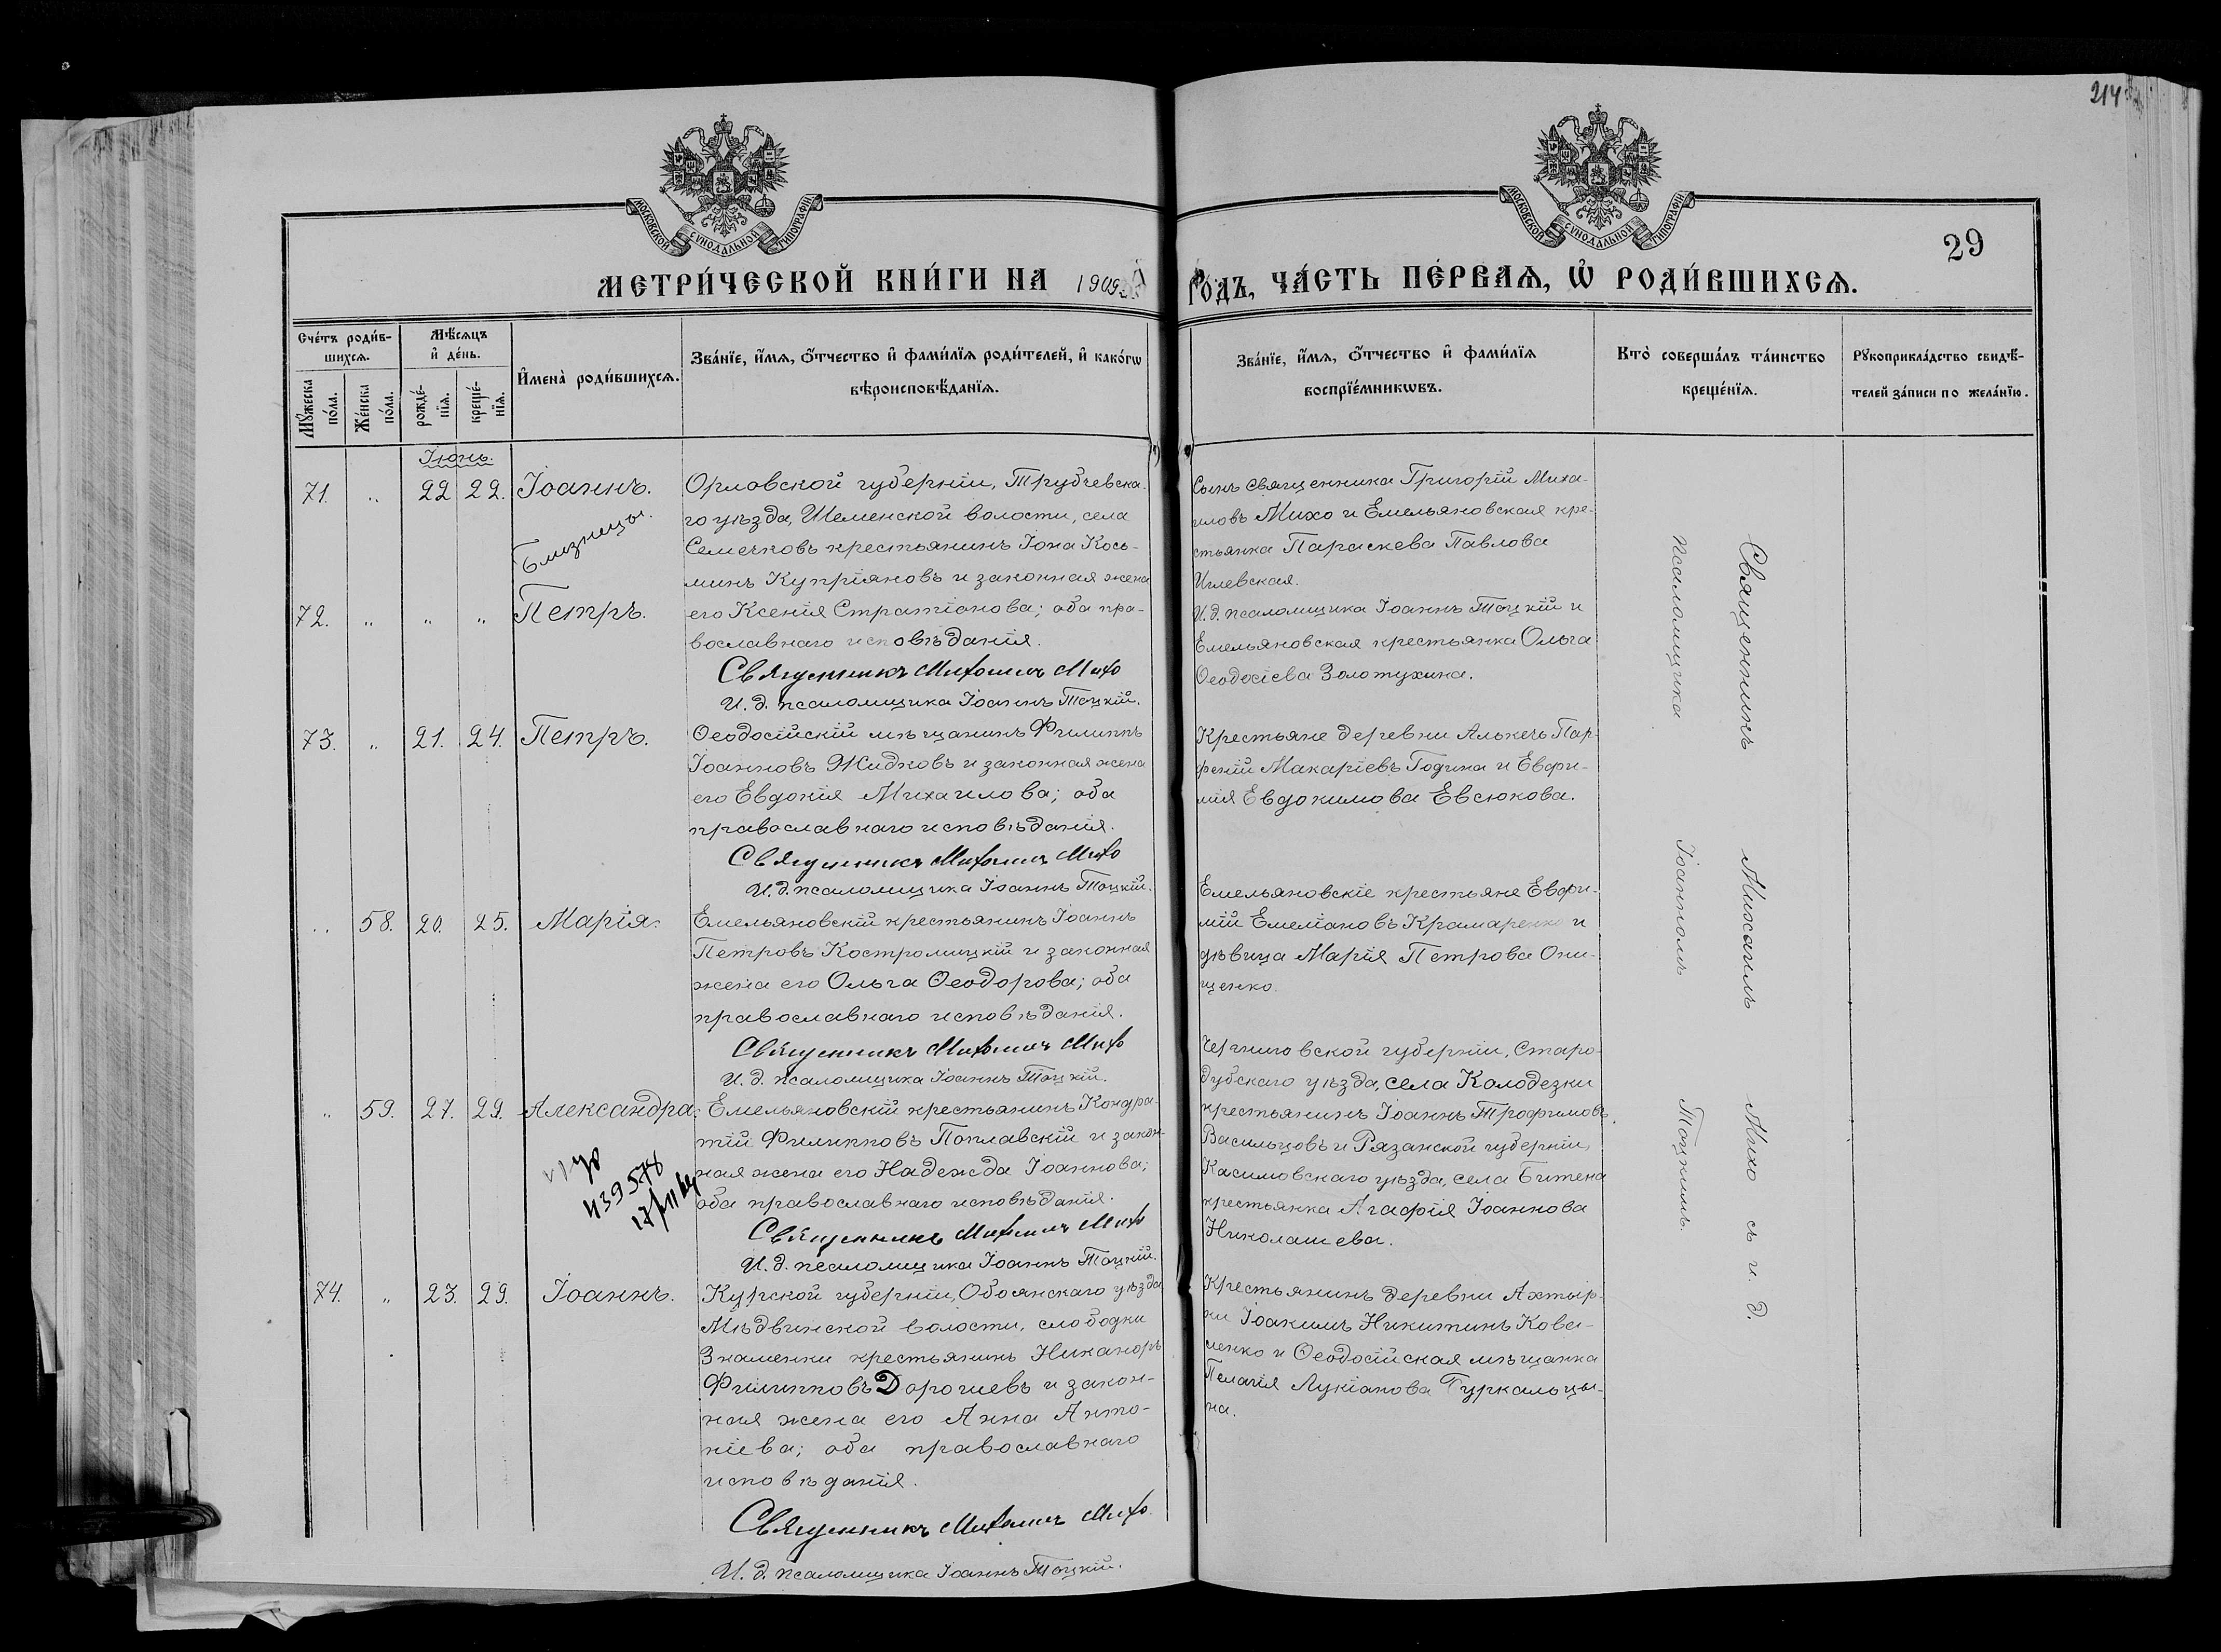 214
29
МОСКОВСКОЙ СѴНОДАЛЬНОЙ ТИПОГРАФІИ
МОСКОВСКОЙ СѴНОДАЛЬНОЙ ТИПОГРАФІИ
МЕТРИ́ЧЕСКОЙ КНИ́ГИ НА 1909 ГОДЪ, ЧА́СТЬ ПЕ́РВАѦ, Ѡ РОДИ́ВШИХСѦ.
Счетъ родившихсѧ.
Мꙋжеска пола.
Женска пола.
Мѣсѧцъ и день.
рожденїѧ.
крещенїѧ.
Имена родившихсѧ.
Званїе, имѧ, отчество и фамилїѧ родителей, и какогѡ
вѣроисповѣданїѧ.
Званїе, имѧ, отчество и фамилїѧ
воспрїемникѡвъ.
Кто совершалъ таинство
крещенїѧ.
Рꙋкоприкладство свидѣ-
телей записи по желанїю.
Іюнь.
71. " 22 22. Іоаннъ.
Близнецы.
72. " " " Петръ.
Орловской губерніи, Трубчевска-
го уѣзда, Шеменской волости, села
Семечковъ крестьянинъ Іона Кось-
минъ Купріяновъ и законная жена
его Ксенія Стратіонова; оба пра-
вославнаго исповѣданія.
Священникъ Михаилъ Михо
И. д. псаломщика Іоаннъ Тоцкій.
Сынъ священника Григорій Миха-
иловъ Михо и Емельяновская кре-
стьянка Параскева Павлова
Иглевская.
И. д. псаломщика Іоаннъ Тоцкій и
Емельяновская крестьянка Ольга
Ѳеодосіева Золотухина.
73. " 21. 24. Петръ.
Ѳеодосійскій мѣщанинъ Филиппъ
Іоанновъ Жидковъ и законная жена
его Евдокія Михаилова; оба
православнаго исповѣданія.
Священникъ Михаилъ Михо
И. д. псаломщика Іоаннъ Тоцкій.
Крестьяне деревни Алькечь Пар-
феній Макаріевъ Година и Евфи-
мія Евдокимова Евсюкова.
" 58. 20. 25. Марія.
Емельяновскій крестьянинъ Іоаннъ
Петровъ Костромицкій и законная
жена его Ольга Ѳеодорова; оба
православнаго исповѣданія.
Священникъ Михаилъ Михо
И. д. псаломщика Іоаннъ Тоцкій.
Емельяновскіе крестьяне Евфи-
мій Емеліановъ Крамаренко и
дѣвица Марія Петрова Они-
щенко.
" 59. 27. 29. Александра.
439578
Емельяновскій крестьянинъ Кондра-
тій Филипповъ Поплавскій и закон-
ная жена его Надежда Іоаннова;
оба православнаго исповѣданія.
Священникъ Михаилъ Михо
И. д. псаломщика Іоаннъ Тоцкій.
Черниговской губерніи, Старо-
дубскаго уѣзда, села Колодезки
крестьянинъ Іоаннъ Трофимовъ
Васильцовъ и Рязанской губерніи,
Касимовскаго уѣзда, села Битена
крестьянка Агафія Іоаннова
Николашева.
74. " 23. 29. Іоаннъ.
Курской губерніи, Обоянскаго уѣзда
Мѣдвинской волости, слободки
Знаменки крестьянинъ Никаноръ
Филипповъ Дорогиевъ и закон-
ная жена его Анна Анто-
ніева; оба православнаго
исповѣданія.
Священникъ Михаилъ Михо
И. д. псаломщика Іоаннъ Тоцкій.
Крестьянинъ деревни Ахтыр-
ки Іоакимъ Никитинъ Кова-
ленко и Ѳеодосійская мѣщанка
Пелагія Лукіанова Гуркальцы-
на.
Священникъ Михаилъ Михо съ и. д.
псаломщика Іоанномъ Тоцкимъ.